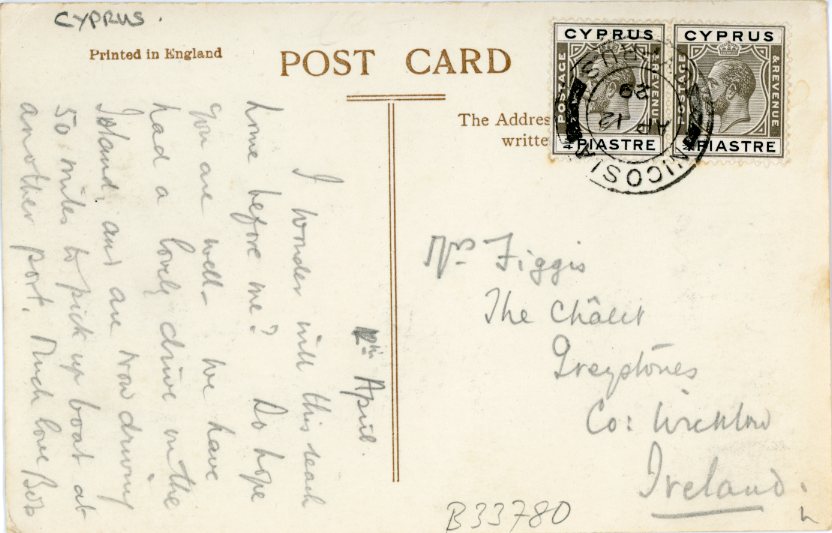 CYPRUS.
Printed in England
POST CARD
The Addres
writte
CYPRUS
POSTAGE
& REVENUE
PIASTRE
CYPRUS
POSTAGE
& REVENUE
PIASTRE
CYPRUS
AP 12
29
NICOSIA
12th April.
I wonder will this reach
home before me? Do hope
you are well - We have
had a lovely drive in the
Island, and are now driving
50 miles to pick up boat at
another port. Much love Bob
Mrs Figgis
The Châlet
Greystones
Co: Wicklow
Ireland.
B33780